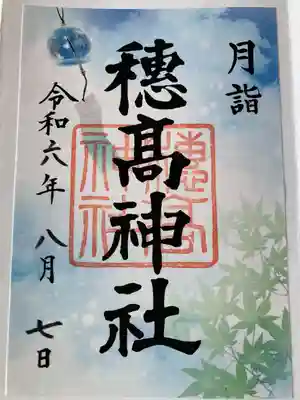 月詣
穗髙神社
令和六年 八月 七日
穂高
神社